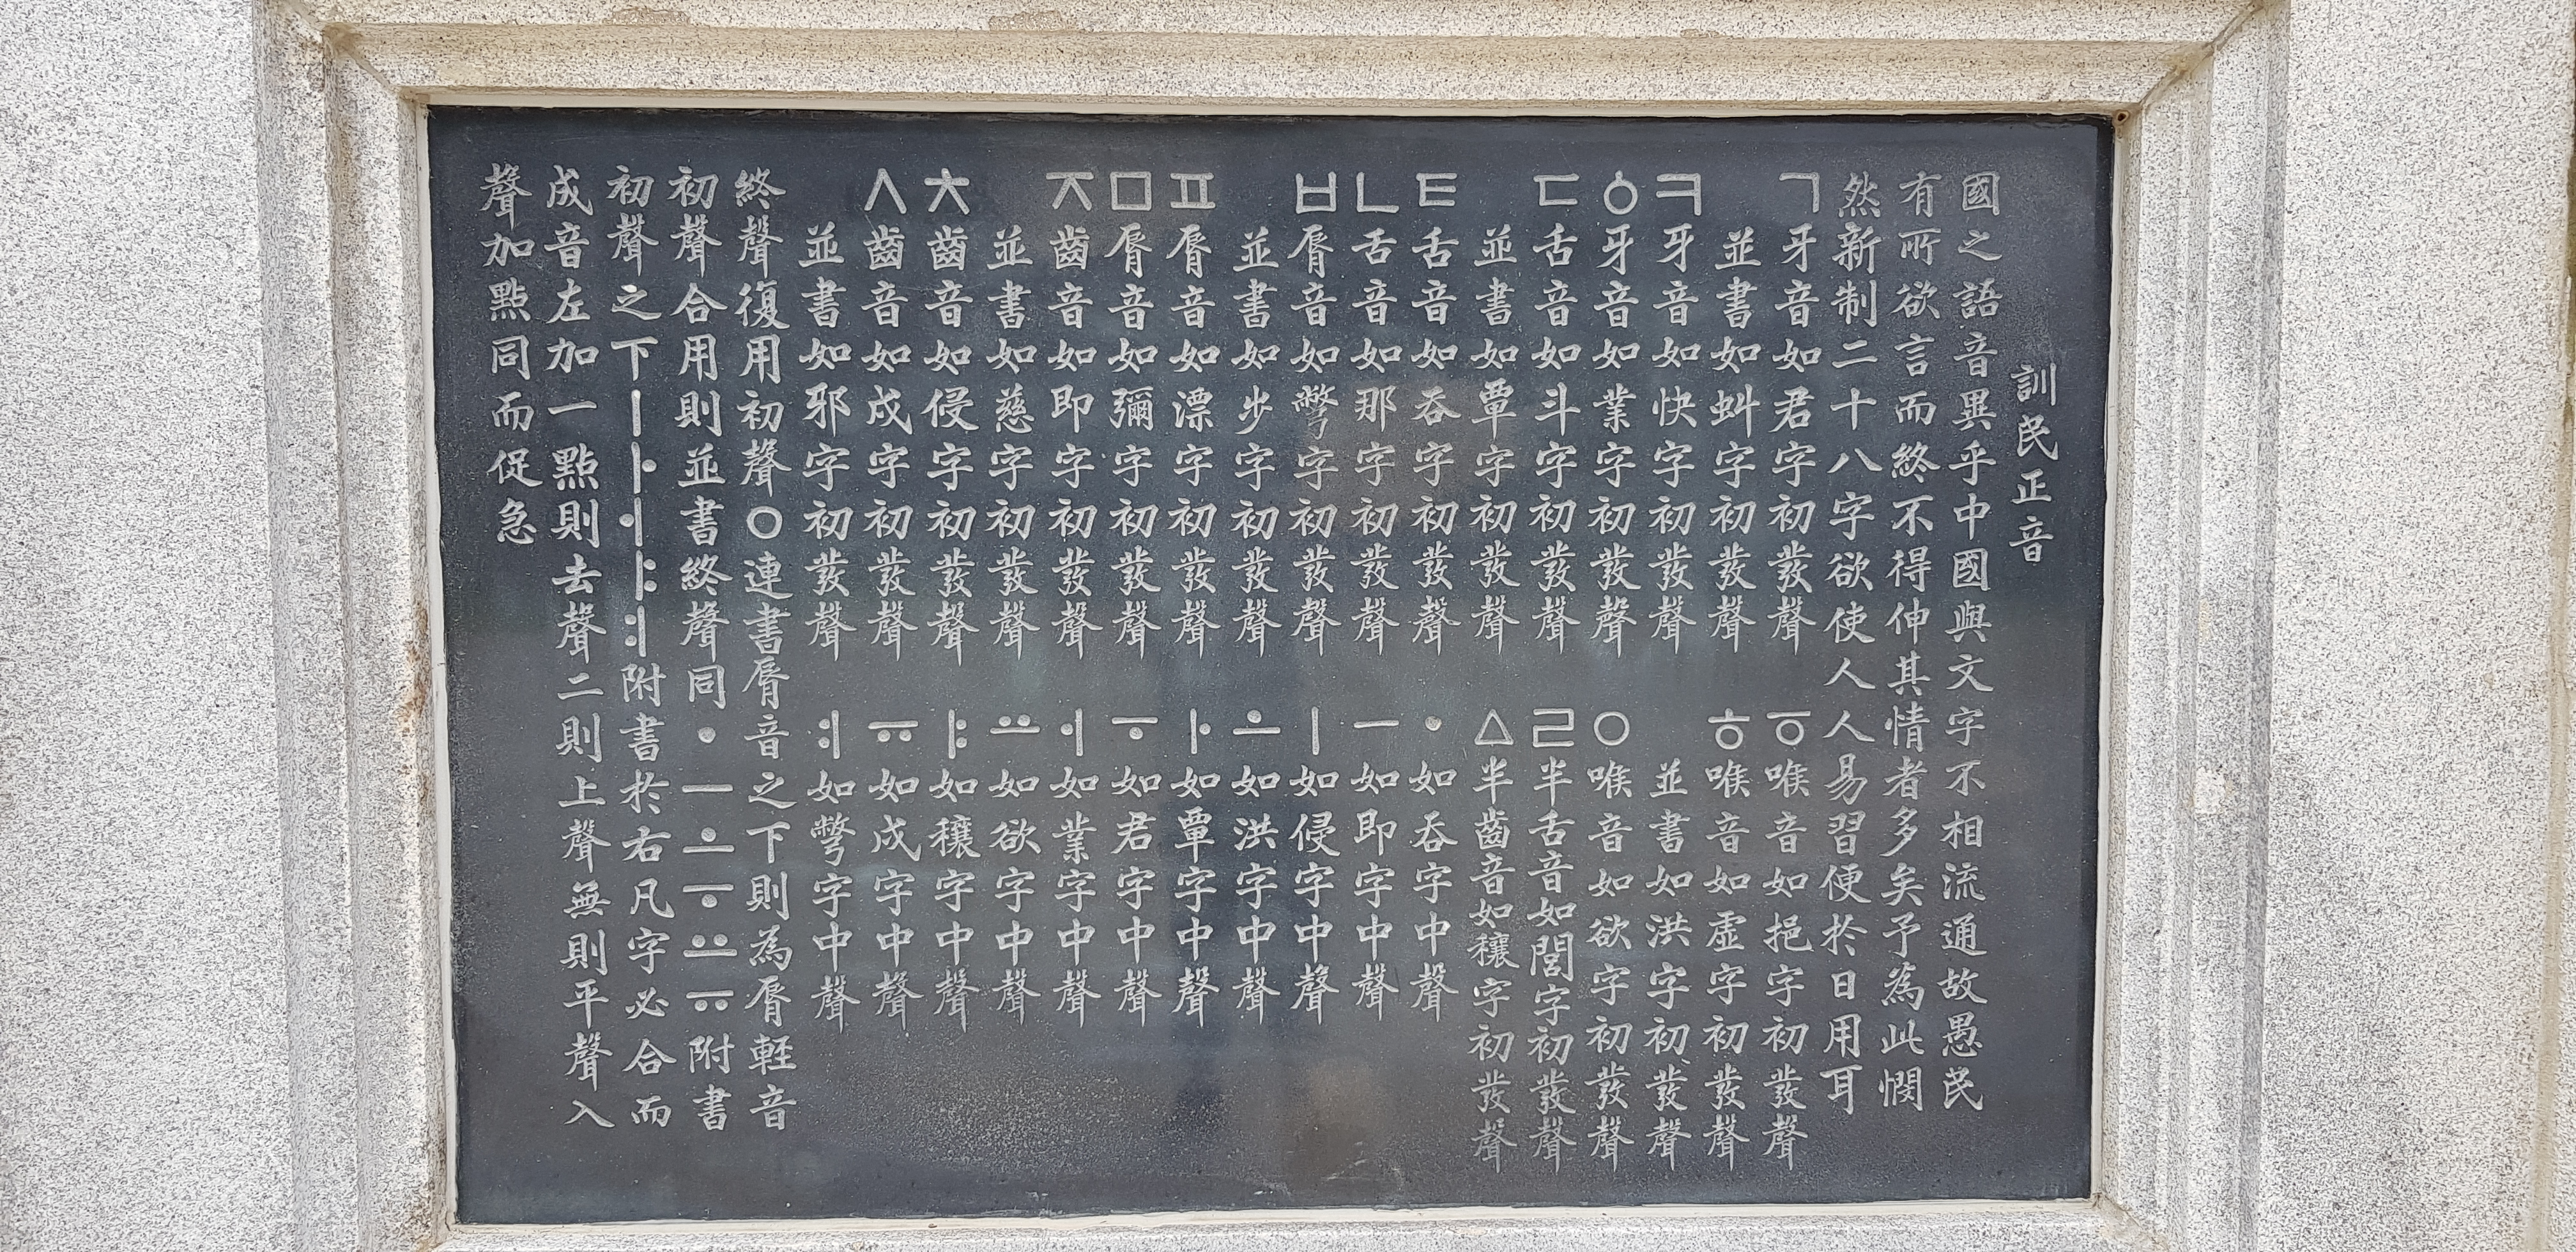 訓民正音
國之語音異乎中國與文字不相流通故愚民
有所欲言而終不得伸其情者多矣予為此憫
然新制二十八字欲使人人易習便於日用耳
ㄱ牙音如君字初發聲
並書如虯字初發聲
ㅋ牙音如快字初發聲
ㆁ牙音如業字初發聲
ㄷ舌音如斗字初發聲
並書如覃字初發聲
ㅌ舌音如呑字初發聲
ㄴ舌音如那字初發聲
ㅂ脣音如彆字初發聲
並書如步字初發聲
ㅍ脣音如漂字初發聲
ㅁ脣音如彌字初發聲
ㅈ齒音如即字初發聲
並書如慈字初發聲
ㅊ齒音如侵字初發聲
ㅅ齒音如戌字初發聲
並書如邪字初發聲
ㆆ喉音如挹字初發聲
ㅎ喉音如虛字初發聲
並書如洪字初發聲
ㅇ喉音如欲字初發聲
ㄹ半舌音如閭字初發聲
ㅿ半齒音如穰字初發聲
ㆍ如呑字中聲
ㅡ如即字中聲
ㅣ如侵字中聲
ㅗ如洪字中聲
ㅏ如覃字中聲
ㅜ如君字中聲
ㅓ如業字中聲
ㅛ如欲字中聲
ㅑ如穰字中聲
ㅠ如戌字中聲
ㅕ如彆字中聲
終聲復用初聲ㅇ連書脣音之下則為脣軽音
初聲合用則並書終聲同ㆍㅡㅗㅜㅛㅠ附書
初聲之下ㅣㅏㅓㅑㅕ附書於右凡字必合而
成音左加一點則去聲二則上聲無則平聲入
聲加點同而促急